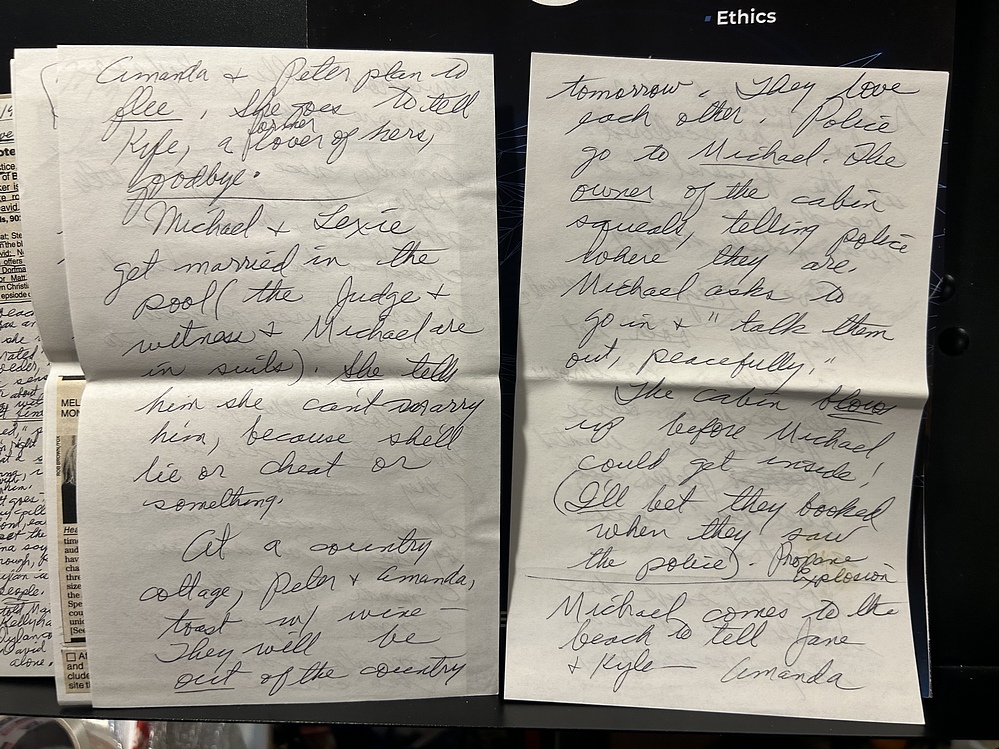 Ethics
Amanda & Peter plan to
flee. She goes to tell
Kyle, a former lover of hers,
goodbye.
Michael & Lexie
get married in the
pool (the Judge &
witness & Michael are
in suits). She tells
him she can't marry
him, because she'll
lie or cheat or
something.
At a country
cottage, Peter & Amanda,
toast w/ wine —
They will be
out of the country
tomorrow. They love
each other. Police
go to Michael. The
owner of the cabin
squeals, telling police
where they are.
Michael asks to
go in & "talk them
out, peacefully."
The cabin blows
up before Michael
could get inside!
(I'll bet they booked
when they saw
the police). Propane
Explosion
Michael comes to the
beach to tell Jane
& Kyle — Amanda
MEL
MON
alone.
David
people.